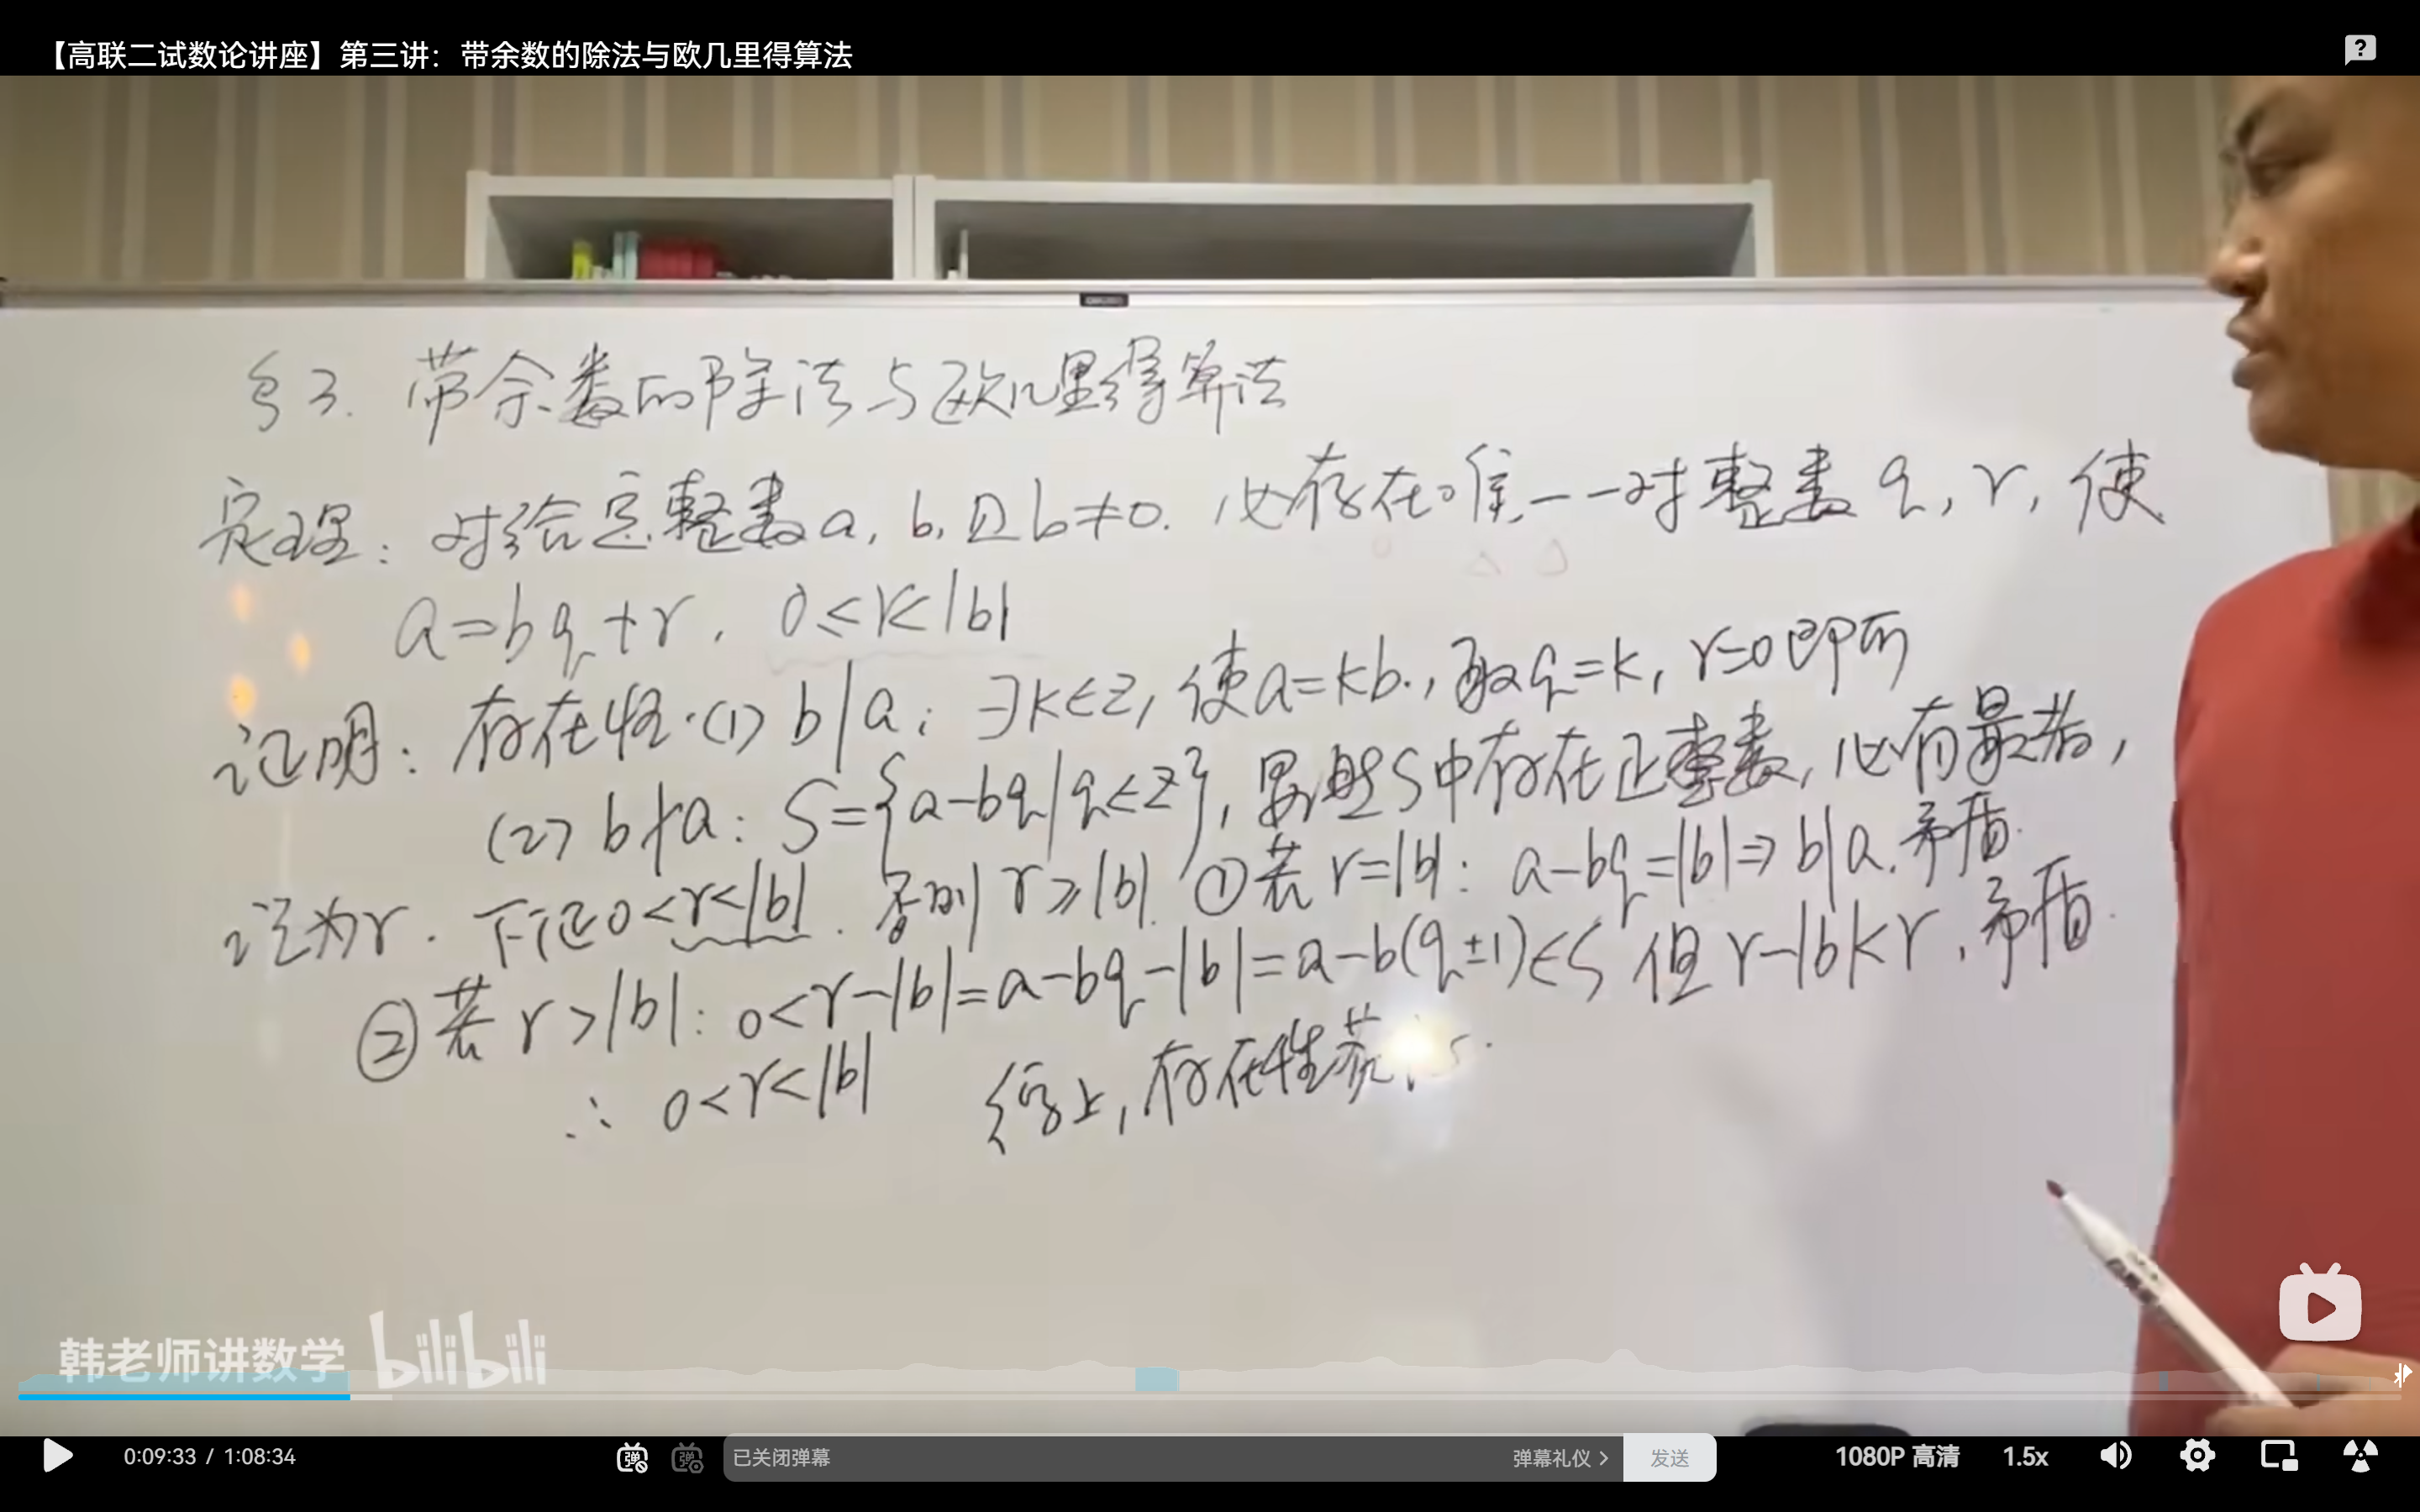 【高联二试数论讲座】第三讲：带余数的除法与欧几里得算法
§3. 带余数的除法与欧几里得算法
定理：对给定整数a, b, 且b≠0. 必存在唯一一对整数 q, r, 使
a=bq+r, 0≤r<|b|
证明：存在性.(1) b|a: ∃k∈Z, 使a=kb., 取q=k, r=0即可
(2) b∤a: S={a-bq|q∈Z}, 显然S中存在正整数, 必有最小者,
记为r. 下证0<r<|b|. 否则 r≥|b|. ①若 r=|b|: a-bq=|b|⇒b|a.矛盾.
②若 r>|b|: 0<r-|b|=a-bq-|b|=a-b(q±1)∈S 但 r-|b|<r, 矛盾.
∴ 0<r<|b| 综上, 存在性获
韩老师讲数学 bilibili
0:09:33 / 1:08:34 弹 弹 已关闭弹幕 弹幕礼仪 > 发送 1080P 高清 1.5x